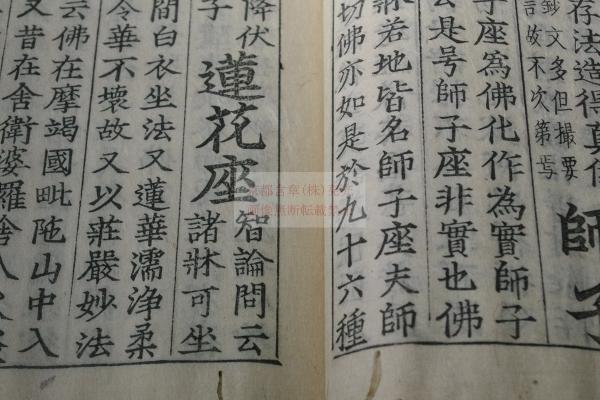 存法造得真
鈔文多但撮要
訖故不次第焉
師子
子座爲佛化作為實師子
是号師子座非實也佛
牀若地皆名師子座夫師
切佛亦如是於九十六種
降伏
子
蓮花座
智論問云
諸牀可坐
間白衣坐法又蓮華濡淨柔
令華不壞故又以莊嚴妙法
云佛在摩竭國毗陁山中入
又昔在舍衛婆羅舍八
京都古章(株)
画像無断転載禁